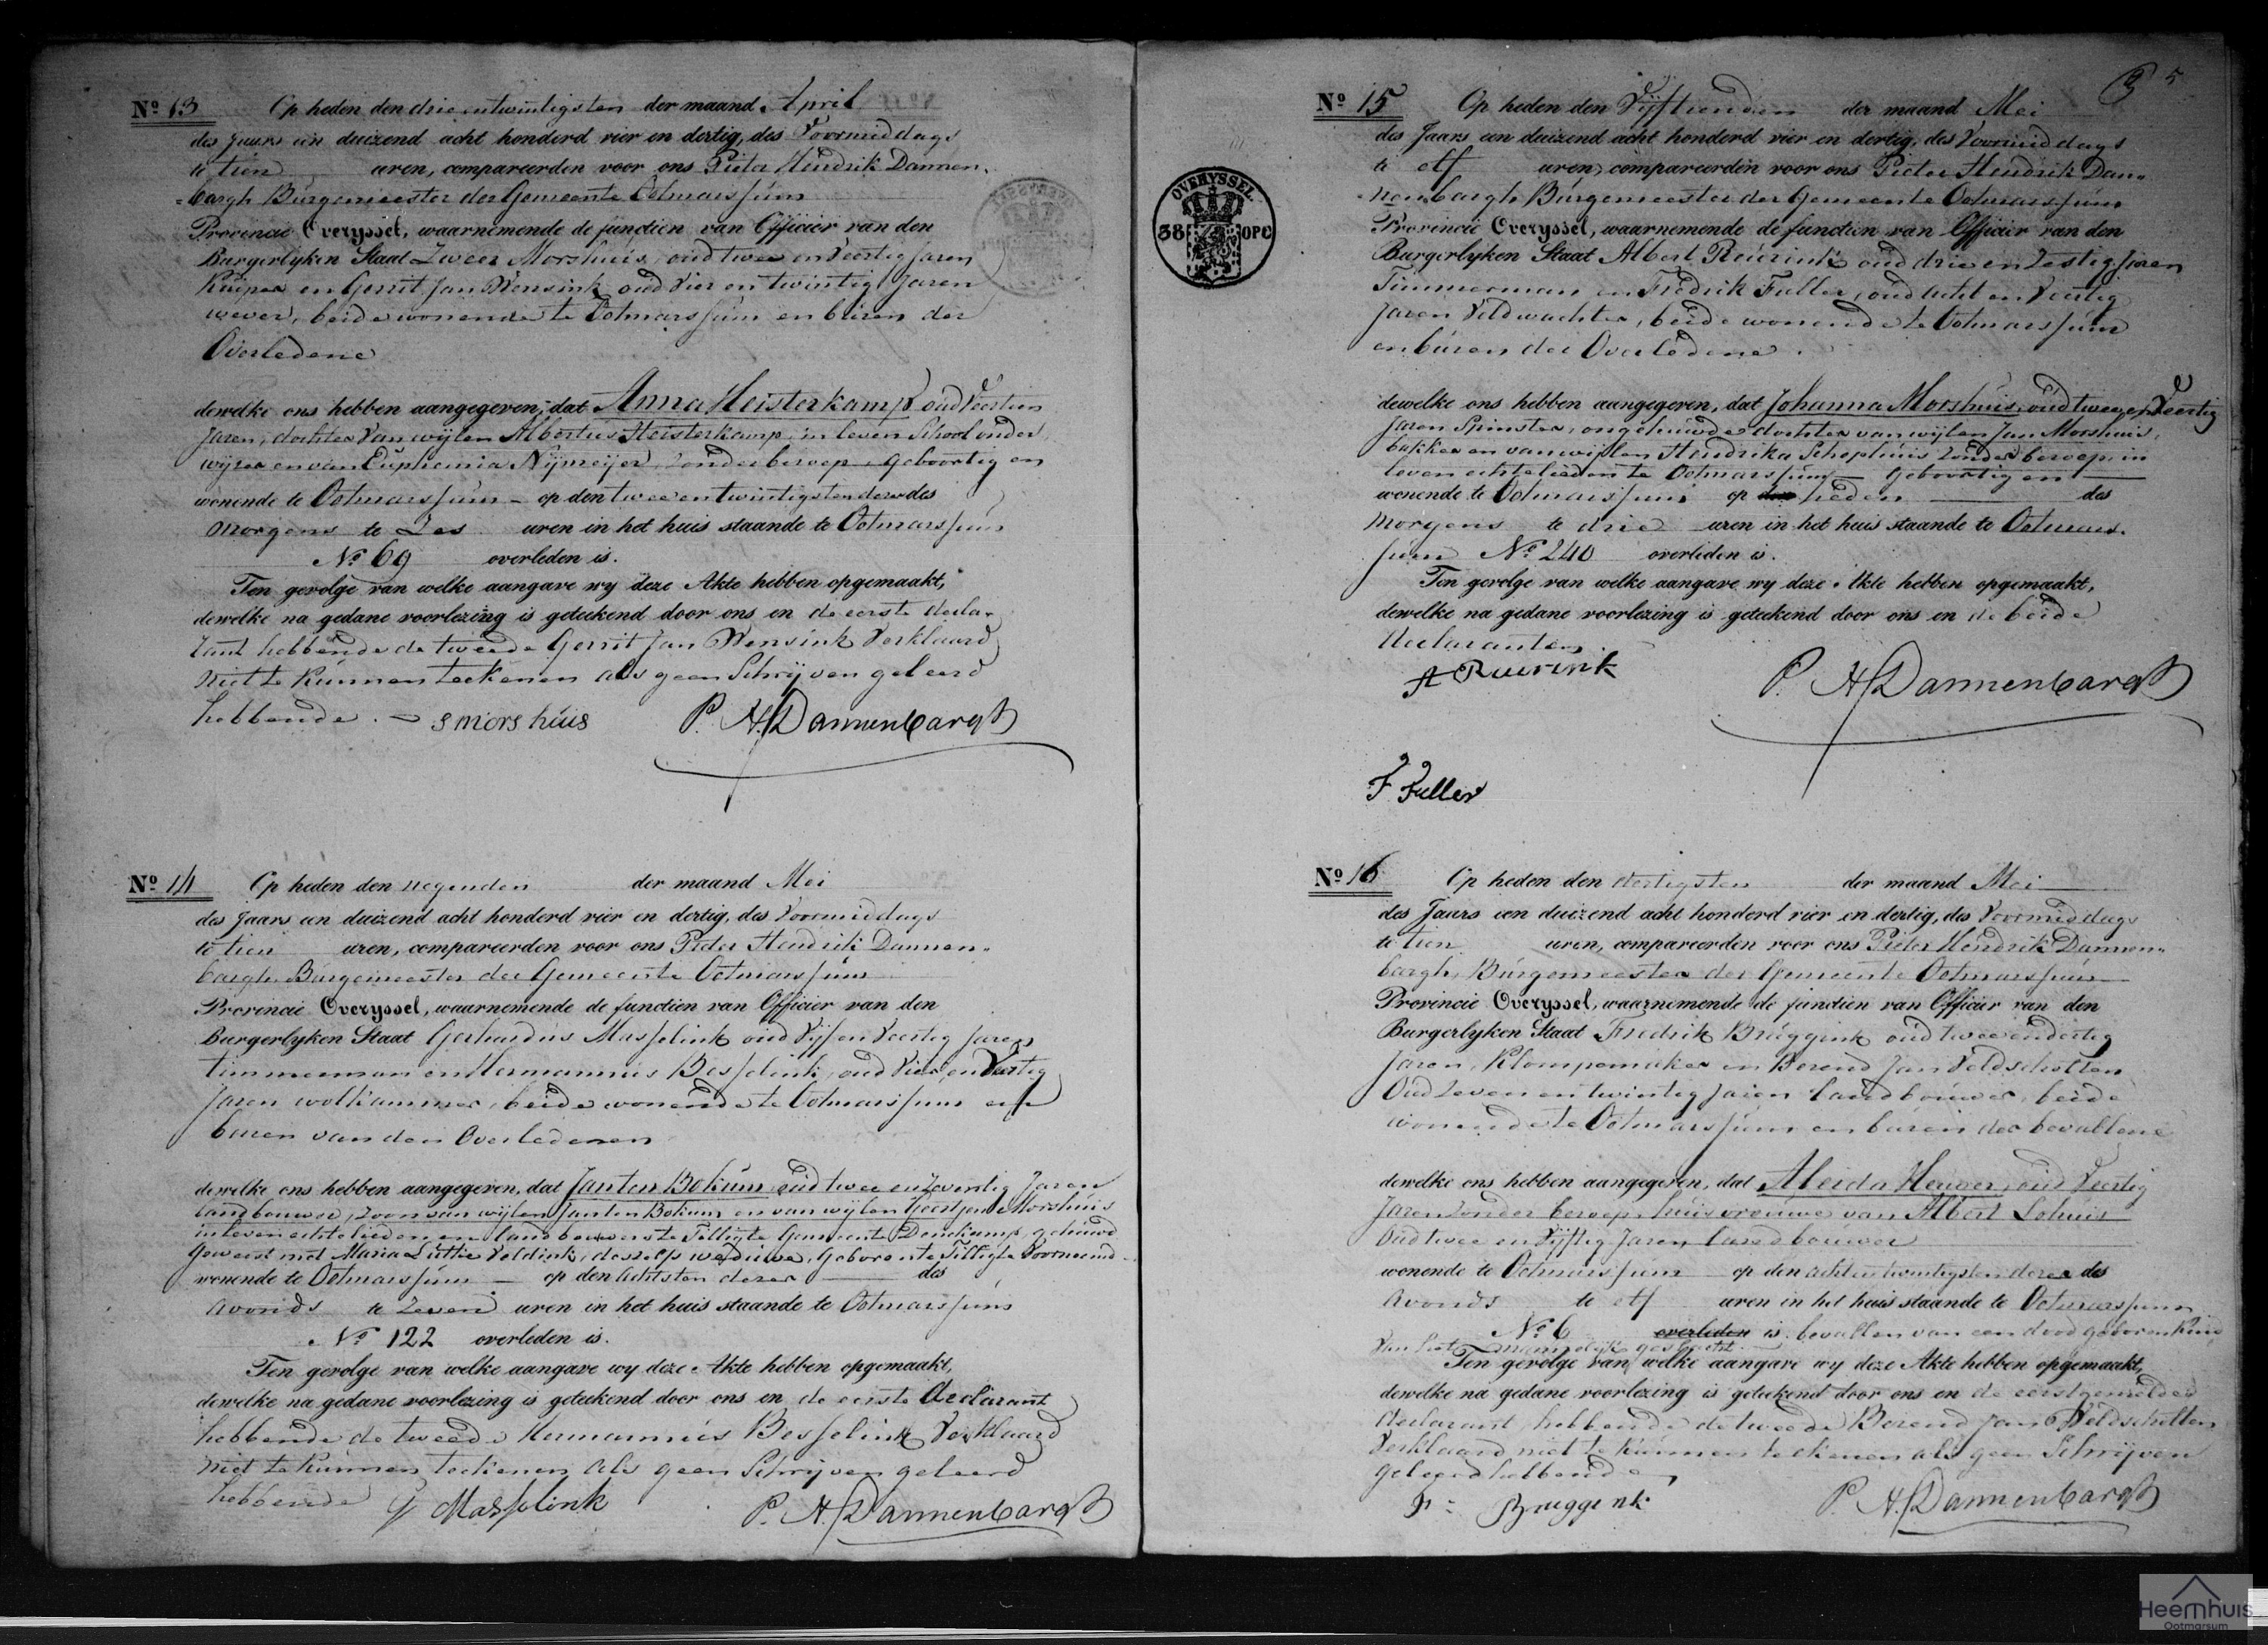 Nº 13 Op heden den drie entwintigsten der maand April
des Jaars een duizend acht honderd vier en dertig, des Voormiddags
te tien uren, compareerden voor ons Pieter Hendrik Dannen-
bargh Burgemeester der Gemeente Ootmarssum
Provincie Overyssel, waarnemende de functien van Officier van den
Burgerlyken Staat Zweer Morshuis, oud twee en Veertig Jaren
Kuiper en Gerrit Jan Wensink oud Vier en twintig Jaren
wever, beide wonende te Ootmarssum en buren der
Overledene
dewelke ons hebben aangegeven, dat Anna Heisterkamp oud Veertien
Jaren, dochter van wijlen Albertus Heisterkamp, in leven Schoolonder
wijzer en van Euphemia Nijmeijer, zonder beroep, Geboortig en
wonende te Ootmarssum op den twee entwintigsten dezer des
morgens te Zes uren in het huis staande te Ootmarssum
Nº 69 overleden is.
Ten gevolge van welke aangave wy deze Akte hebben opgemaakt,
dewelke na gedane voorlezing is geteekend door ons en de eerste decla-
rant hebbende de tweede Gerrit Jan Wensink Verklaard
niet te kunnen teekenen als geen Schrijven geleerd
hebbende. S morshuis P. H. Dannenbargh
Nº 14 Op heden den negenden der maand Mei
des Jaars een duizend acht honderd vier en dertig, des Voormiddags
te tien uren, compareerden voor ons Pieter Hendrik Dannen-
bargh Burgemeester der Gemeente Ootmarssum
Provincie Overyssel, waarnemende de functien van Officier van den
Burgerlyken Staat Gerhardus Masselink oud Vijf en Veertig Jaren
timmerman en Hermannus Besselink, oud Vier en Veertig
Jaren wolkammer, beide wonende te Ootmarssum en
buren van den Overledenen
dewelke ons hebben aangegeven, dat Jan ten Bokum oud twee en Zeventig Jaren
landbouwer, zoon van wijlen Jan ten Bokum en van wijlen Geertjen Morshuis
in leven echtelieden en landbouwers te Tilligte Gemeente Denekamp, gehuwd
geweest met Maria Luttie Veldink, deszelfs weduwe, Geboren te Tilligte Voornoemd
wonende te Ootmarssum op den achtsten dezer des
avonds te Zeven uren in het huis staande te Ootmarssum
Nº 122 overleden is.
Ten gevolge van welke aangave wy deze Akte hebben opgemaakt,
dewelke na gedane voorlezing is geteekend door ons en de eerste declarant
hebbende de tweede Hermannus Besselink Verklaard
niet te kunnen teekenen als geen Schrijven geleerd
hebbende G Masselink P. H. Dannenbargh
5
OVERYSSEL
38
Nº 15 Op heden den Vijftienden der maand Mei
des Jaars een duizend acht honderd vier en dertig, des Voormiddags
te elf uren, compareerden voor ons Pieter Hendrik Dan-
nenbargh Burgemeester der Gemeente Ootmarssum
Provincie Overyssel, waarnemende de functien van Officier van den
Burgerlyken Staat Albert Reurink oud drie en Zestig Jaren
Timmerman en Fredrik Fuller, oud Acht en Veertig
Jaren Veldwachter, beide wonende te Ootmarssum
en buren der Overledene.
dewelke ons hebben aangegeven, dat Johanna Morshuis, oud twee en Veertig
Jaren Spinster, ongehuwde dochter van wijlen Jan Morshuis,
bakker en van wijlen Hendrika Schophuis zonder beroep, in
leven echtelieden te Ootmarssum Geboortig en
wonende te Ootmarssum op heden des
morgens te drie uren in het huis staande te Ootmars-
sum Nº 240 overleden is.
Ten gevolge van welke aangave wy deze Akte hebben opgemaakt,
dewelke na gedane voorlezing is geteekend door ons en de beide
declaranten
A Ruerink P. H. Dannenbargh
F. Fuller
Nº 16 Op heden den dertigsten der maand Mei
des Jaars een duizend acht honderd vier en dertig, des Voormiddags
te tien uren, compareerden voor ons Pieter Hendrik Dannen-
bargh, Burgemeester der Gemeente Ootmarssum
Provincie Overyssel, waarnemende de functien van Officier van den
Burgerlyken Staat Fredrik Bruggink oud twee en dertig
Jaren, Klompemaker en Berend Jan Veldscholten
Oud Zeven en twintig Jaren landbouwer, beide
wonende te Ootmarssum en buren der bevallene
dewelke ons hebben aangegeven, dat Aleida Hewer, oud Veertig
Jaren zonder beroep, huisvrouwe van Albert Lohuis
Oud twee en Vijftig Jaren landbouwer
wonende te Ootmarssum op den achtentwintigsten dezer des
Avonds te elf uren in het huis staande te Ootmarssum
Nº 6 overleden is. bevallen van een dood geboren Kind
Van het mannelijk geslacht.
Ten gevolge van welke aangave wy deze Akte hebben opgemaakt,
dewelke na gedane voorlezing is geteekend door ons en de eerstgemelde
declarant, hebbende de tweede Berend Jan Veldscholten
Verklaard niet te kunnen teekenen als geen Schrijven
geleerd hebbende
F: Bruggink P. H. Dannenbargh
Heemhuis
Ootmarsum